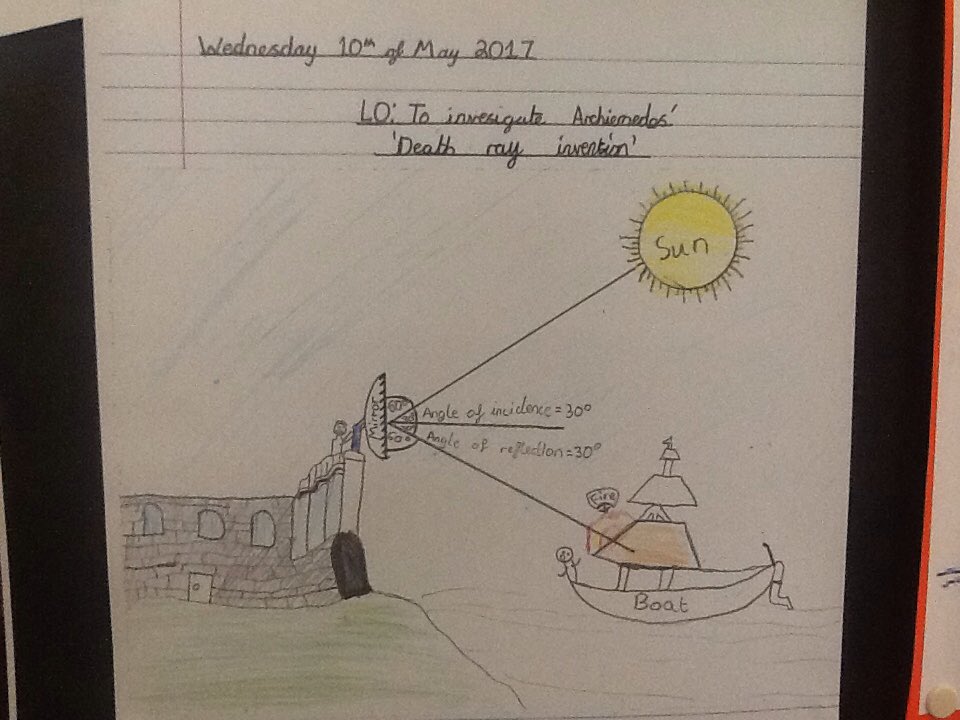 Wednesday 10th of May 2017
LO: To invesigate Archiemedes'
'Death ray invention'
Sun
Mirror
60°
30°
Angle of incidence = 30°
60°
Angle of reflection = 30°
Fire
Boat